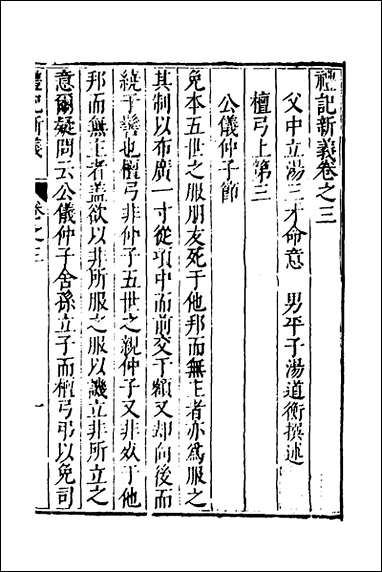 禮記新義卷之三
父中立湯三才命意　男平子湯道衡撰述
檀弓上第三
公儀仲子節
免本五世之服朋友死于他邦而無主者亦爲服之
其制以布廣一寸從項中而前交于額又却向後而
繞于䯻也檀弓非仲子五世之親仲子又非死于他
邦而無主者蓋欲以非所服之服以譏立非所立之
意爾疑問云公儀仲子舍孫立子而檀弓弔以免司
禮記新義
卷之三
一